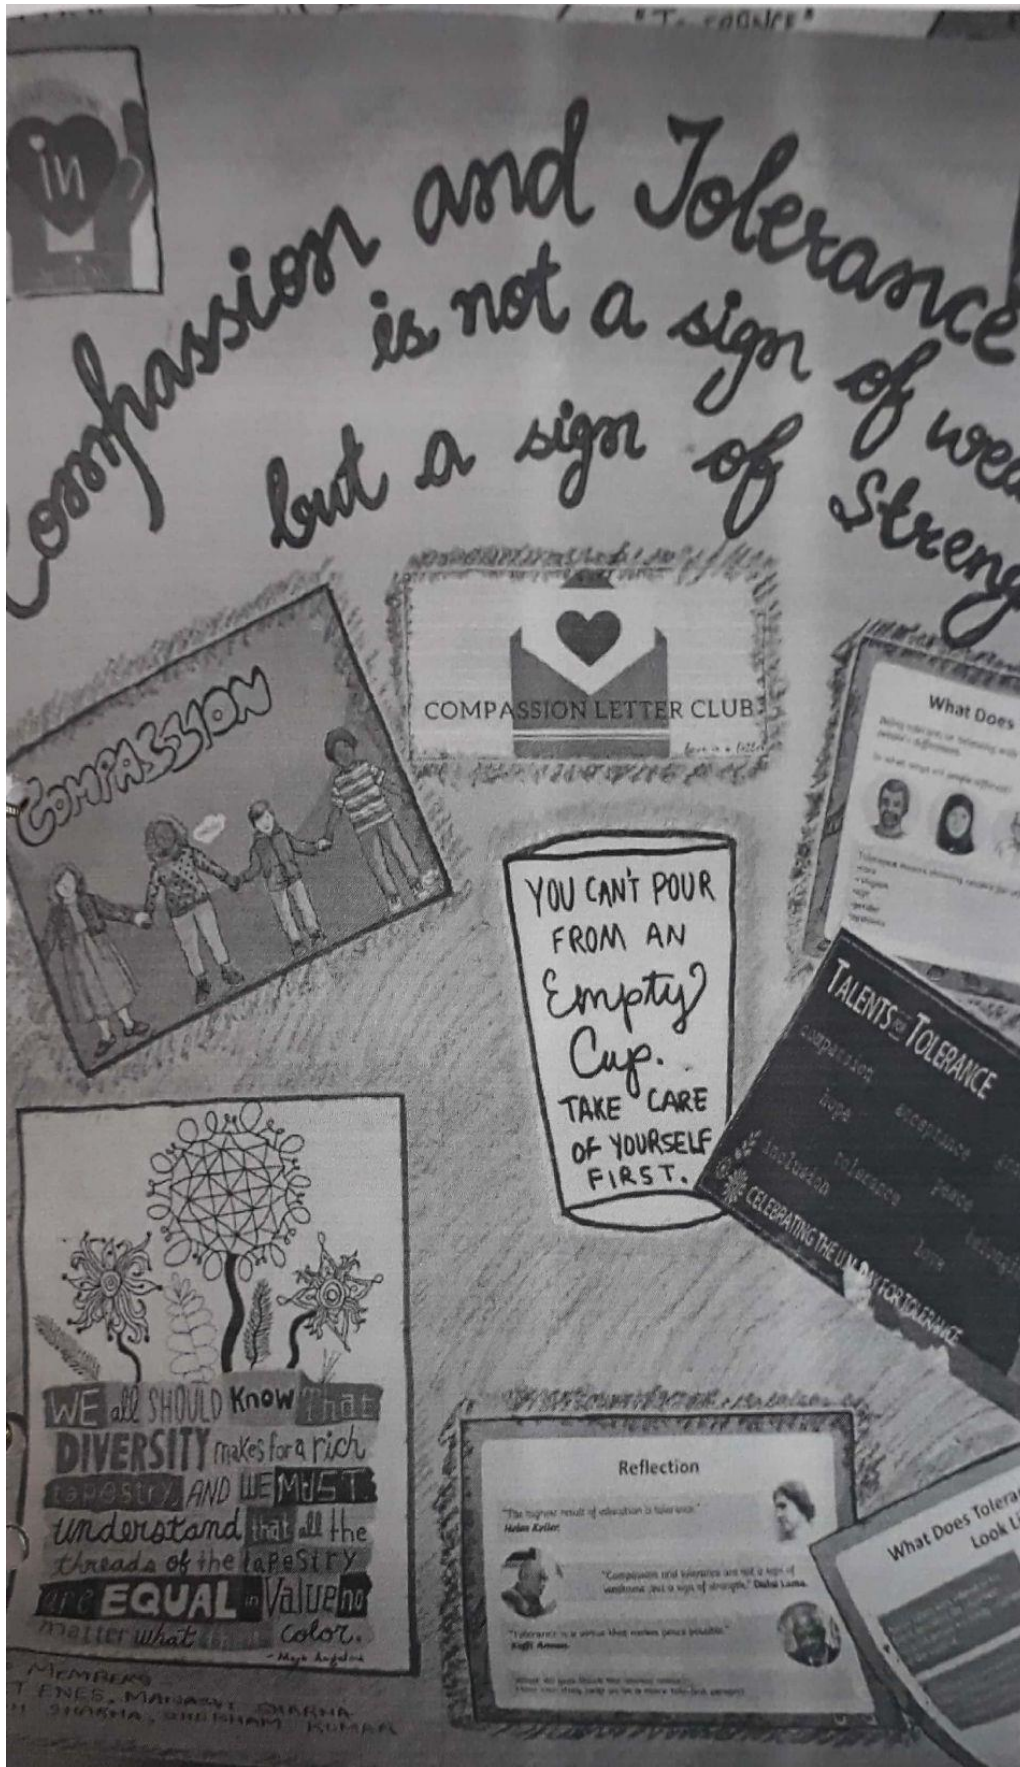 in
Compassion and Tolerance
is not a sign of wea
but a sign of Streng
COMPASSION LETTER CLUB
COMPASSION
What Does
YOU CAN'T POUR
FROM AN
Empty
Cup.
TAKE CARE
OF YOURSELF
FIRST.
TALENTS FOR TOLERANCE
compassion
hope acceptance
inclusion tolerance peace
love
CELEBRATING THE U.N. DAY FOR TOLERANCE
WE all SHOULD Know That
DIVERSITY makes for a rich
tapestry, AND WE MUST
understand that all the
threads of the tapestry
are EQUAL in Value no
matter what color.
- Maya Angelou
Reflection
"The highest result of education is tolerance."
Helen Keller.
"Compassion and tolerance are not a sign of
weakness, but a sign of strength." Dalai Lama.
"Tolerance is a virtue that makes peace possible."
Kofi Annan.
What Does Toleran
Look Li
MEMBERS
SHARMA, SHUBHAM KUMAR